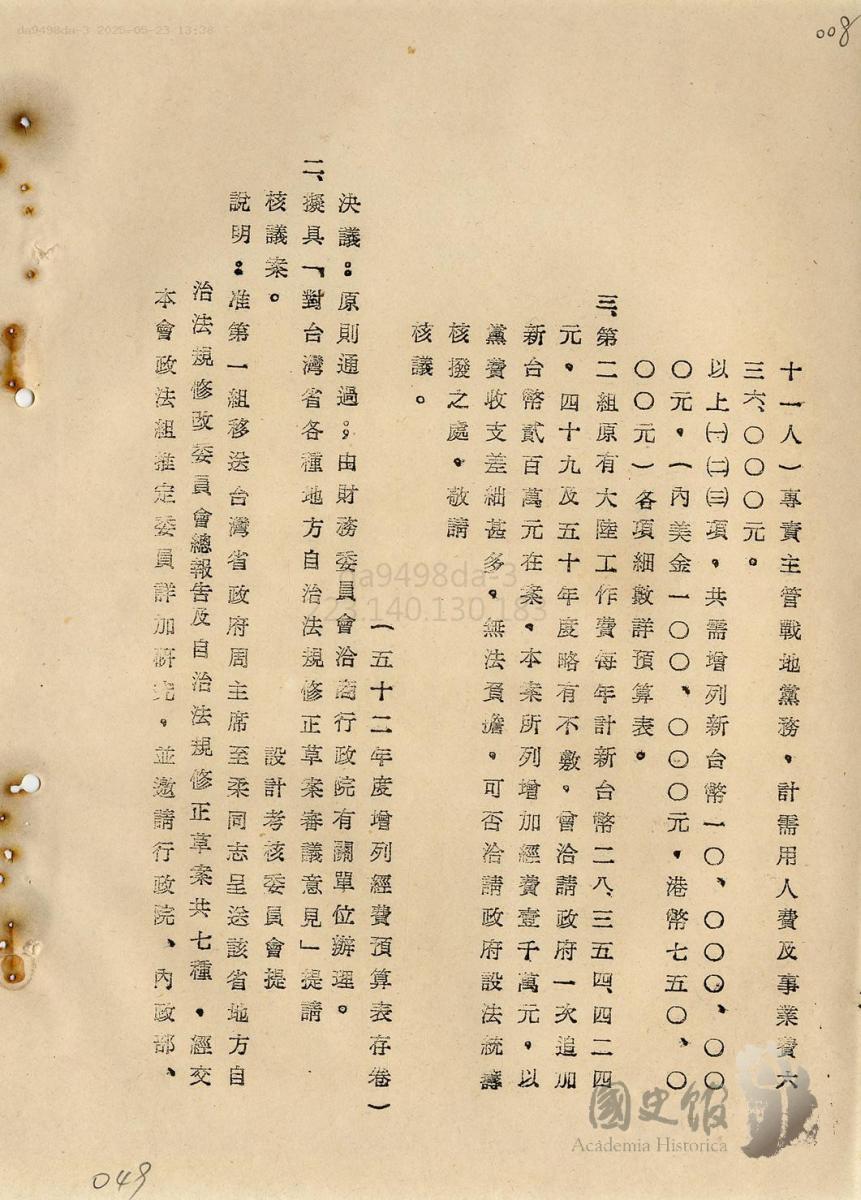 da9498da-3 2025-05-23 13:38
008
十一人)專責主管戰地黨務,計需用人費及事業費六
三六、〇〇〇元。
以上㈠㈡㈢項,共需增列新台幣一〇、〇〇〇、〇〇
〇元,(內美金一〇〇、〇〇〇元,港幣七五〇、〇
〇〇元)各項細數詳預算表。
三、第二組原有大陸工作費每年計新台幣二八、三五四、四二四
元,四十九及五十年度略有不敷,曾洽請政府一次追加
新台幣貳百萬元在案,本案所列增加經費壹千萬元,以
黨費收支差絀甚多,無法負擔,可否洽請政府設法統籌
核撥之處,敬請
核議。
(五十二年度增列經費預算表存卷)
決議:原則通過,由財務委員會洽商行政院有關單位辦理。
二、擬具「對台灣省各種地方自治法規修正草案審議意見」提請
核議案。 設計考核委員會提
說明:准第一組移送台灣省政府周主席至柔同志呈送該省地方自
治法規修改委員會總報告及自治法規修正草案共七種,經交
本會政法組推定委員詳加研究,並邀請行政院、內政部、
da9498da-3
223.140.130.183
國史館
Academia Historica
049